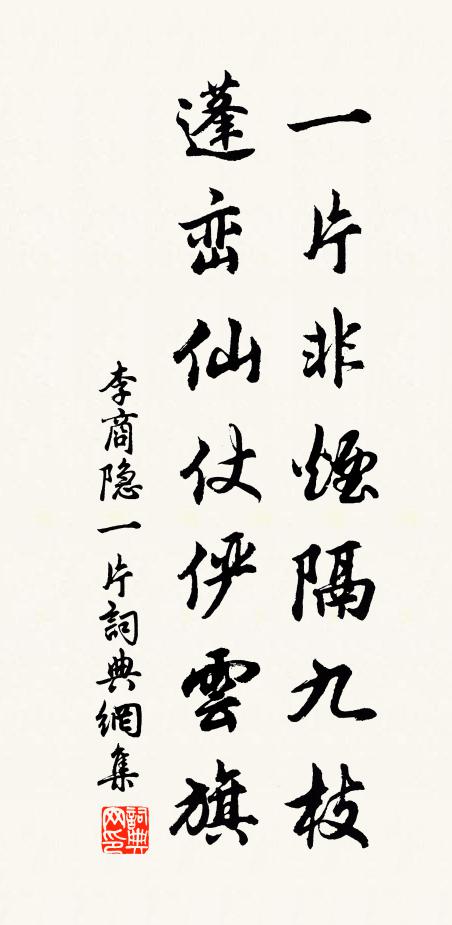 一片非煙隔九枝
蓬峦仙仗俨雲旗
李商隐一片詞典網集
詞典網印